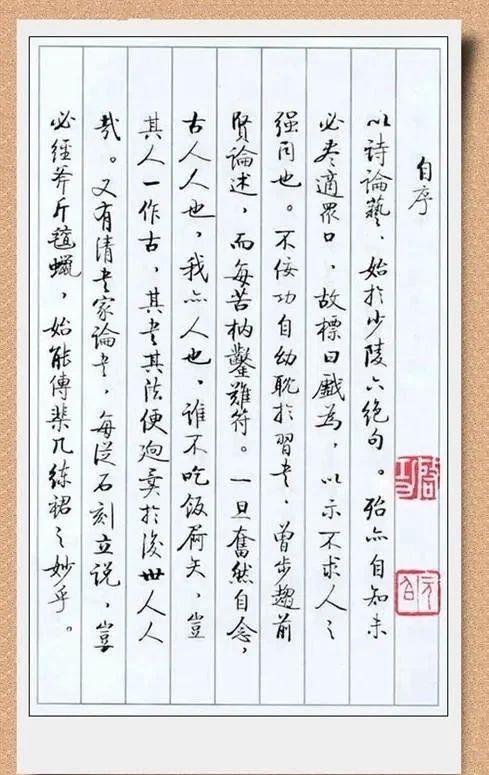 自序
以詩論藝，始於少陵六絕句。殆亦自知未
必盡適眾口，故標曰戲為，以示不求人之
强同也。不佞功自幼耽於習書，曾步趨前
賢論述，而每苦枘鑿難符。一旦奮然自念，
古人人也，我亦人也，誰不吃飯屙矢，豈
其人一作古，其書其法便迥異於後世人人
哉。又有清書家論書，每從石刻立說，豈
必經斧斤氈蠟，始能傳棐几練裙之妙乎。